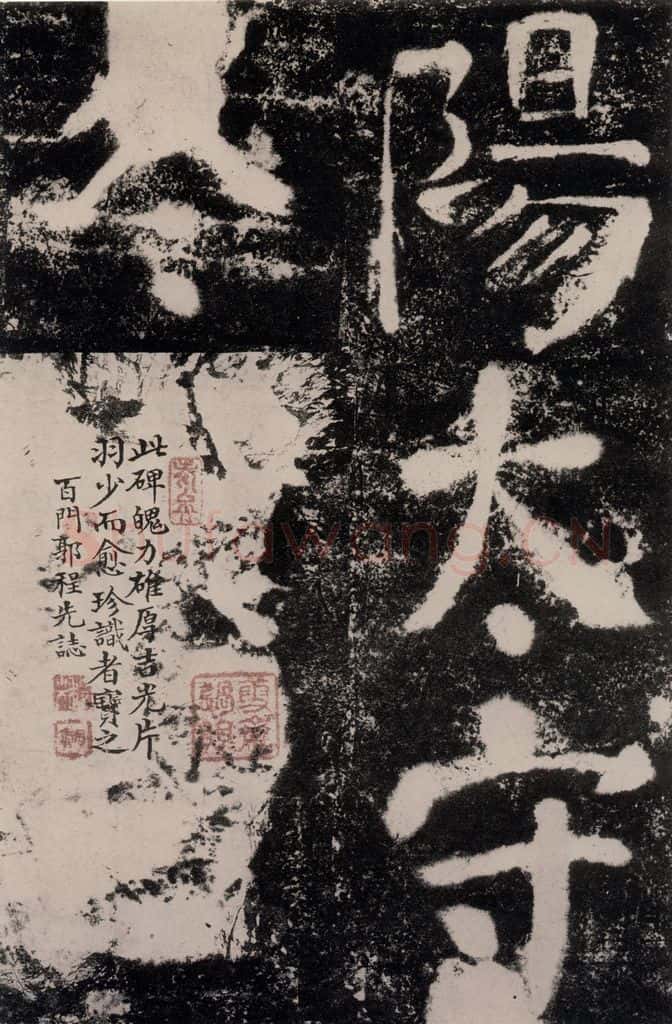 陽太守
此碑魄力雄厚吉光片
羽少而愈珍識者寶之
百門郭程先誌
shufawang.CN